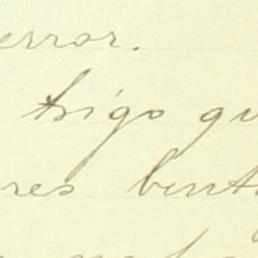 error.
trigo qu
res bent